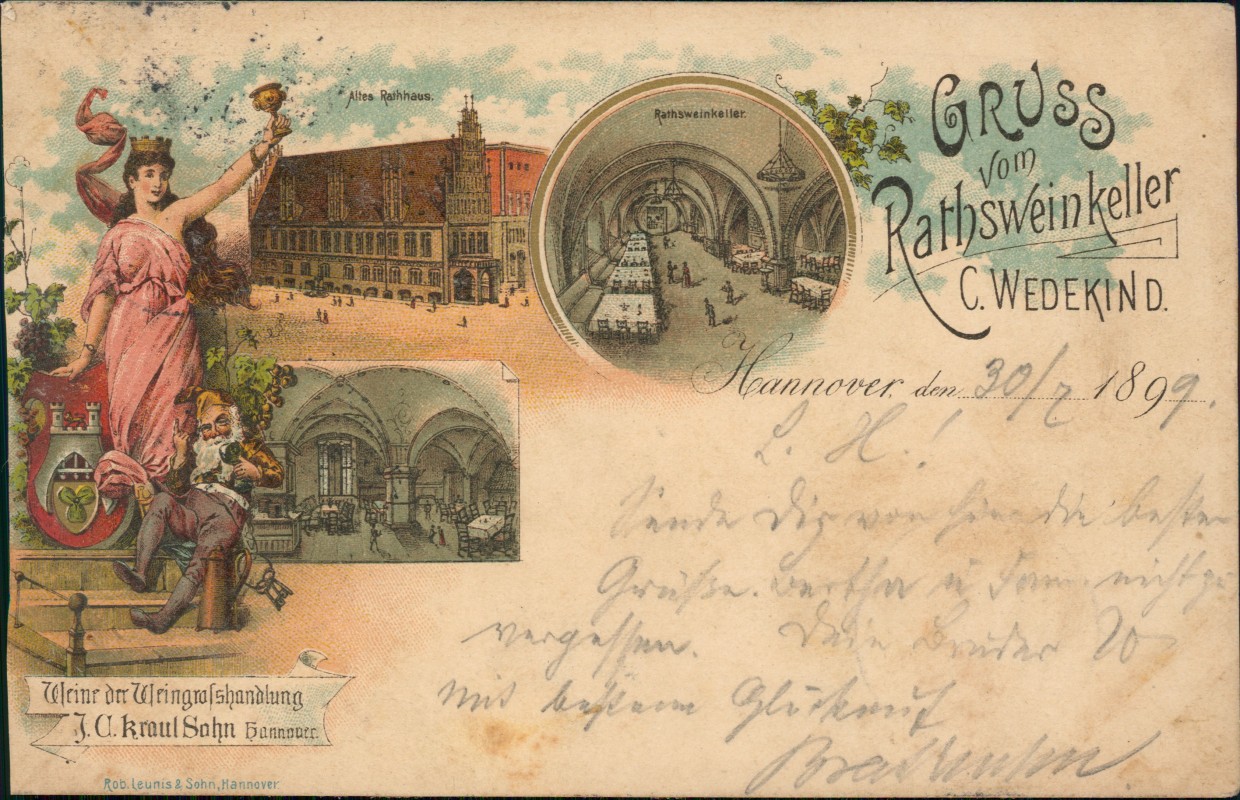 Altes Rathhaus.
Rathsweinkeller.
GRUSS
vom
Rathsweinkeller
C. WEDEKIND.
Hannover, den 30/7 1899.
L. H.!
Sende Dir von hier die besten
Grüße. Bertha u Fam. nicht zu
vergessen. Dein Bruder
Mit bestem Glückauf
Weine der Weingrosshandlung
J. C. Kraul Sohn Hannover.
Rob. Leunis & Sohn, Hannover.